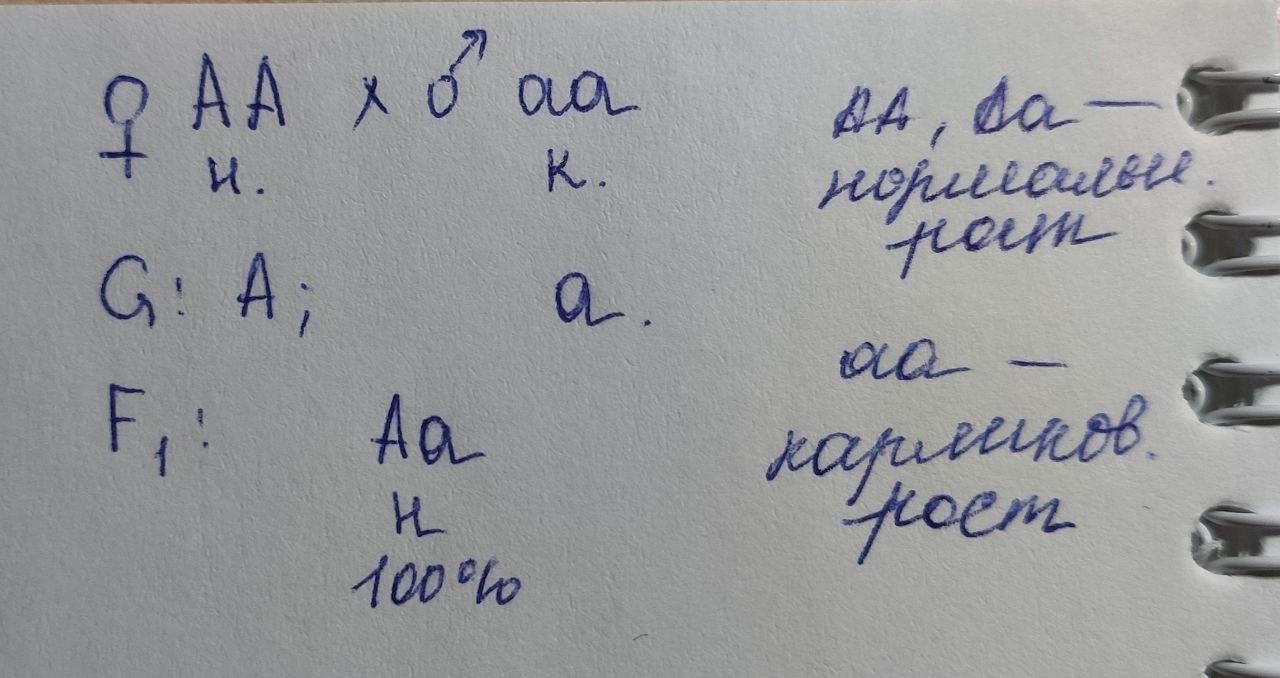 ♀ AA x ♂ aa
н. к.
G: A; a.
F1: Aa
н
100%
AA, Aa —
нормальн.
рост
aa —
карликов.
рост